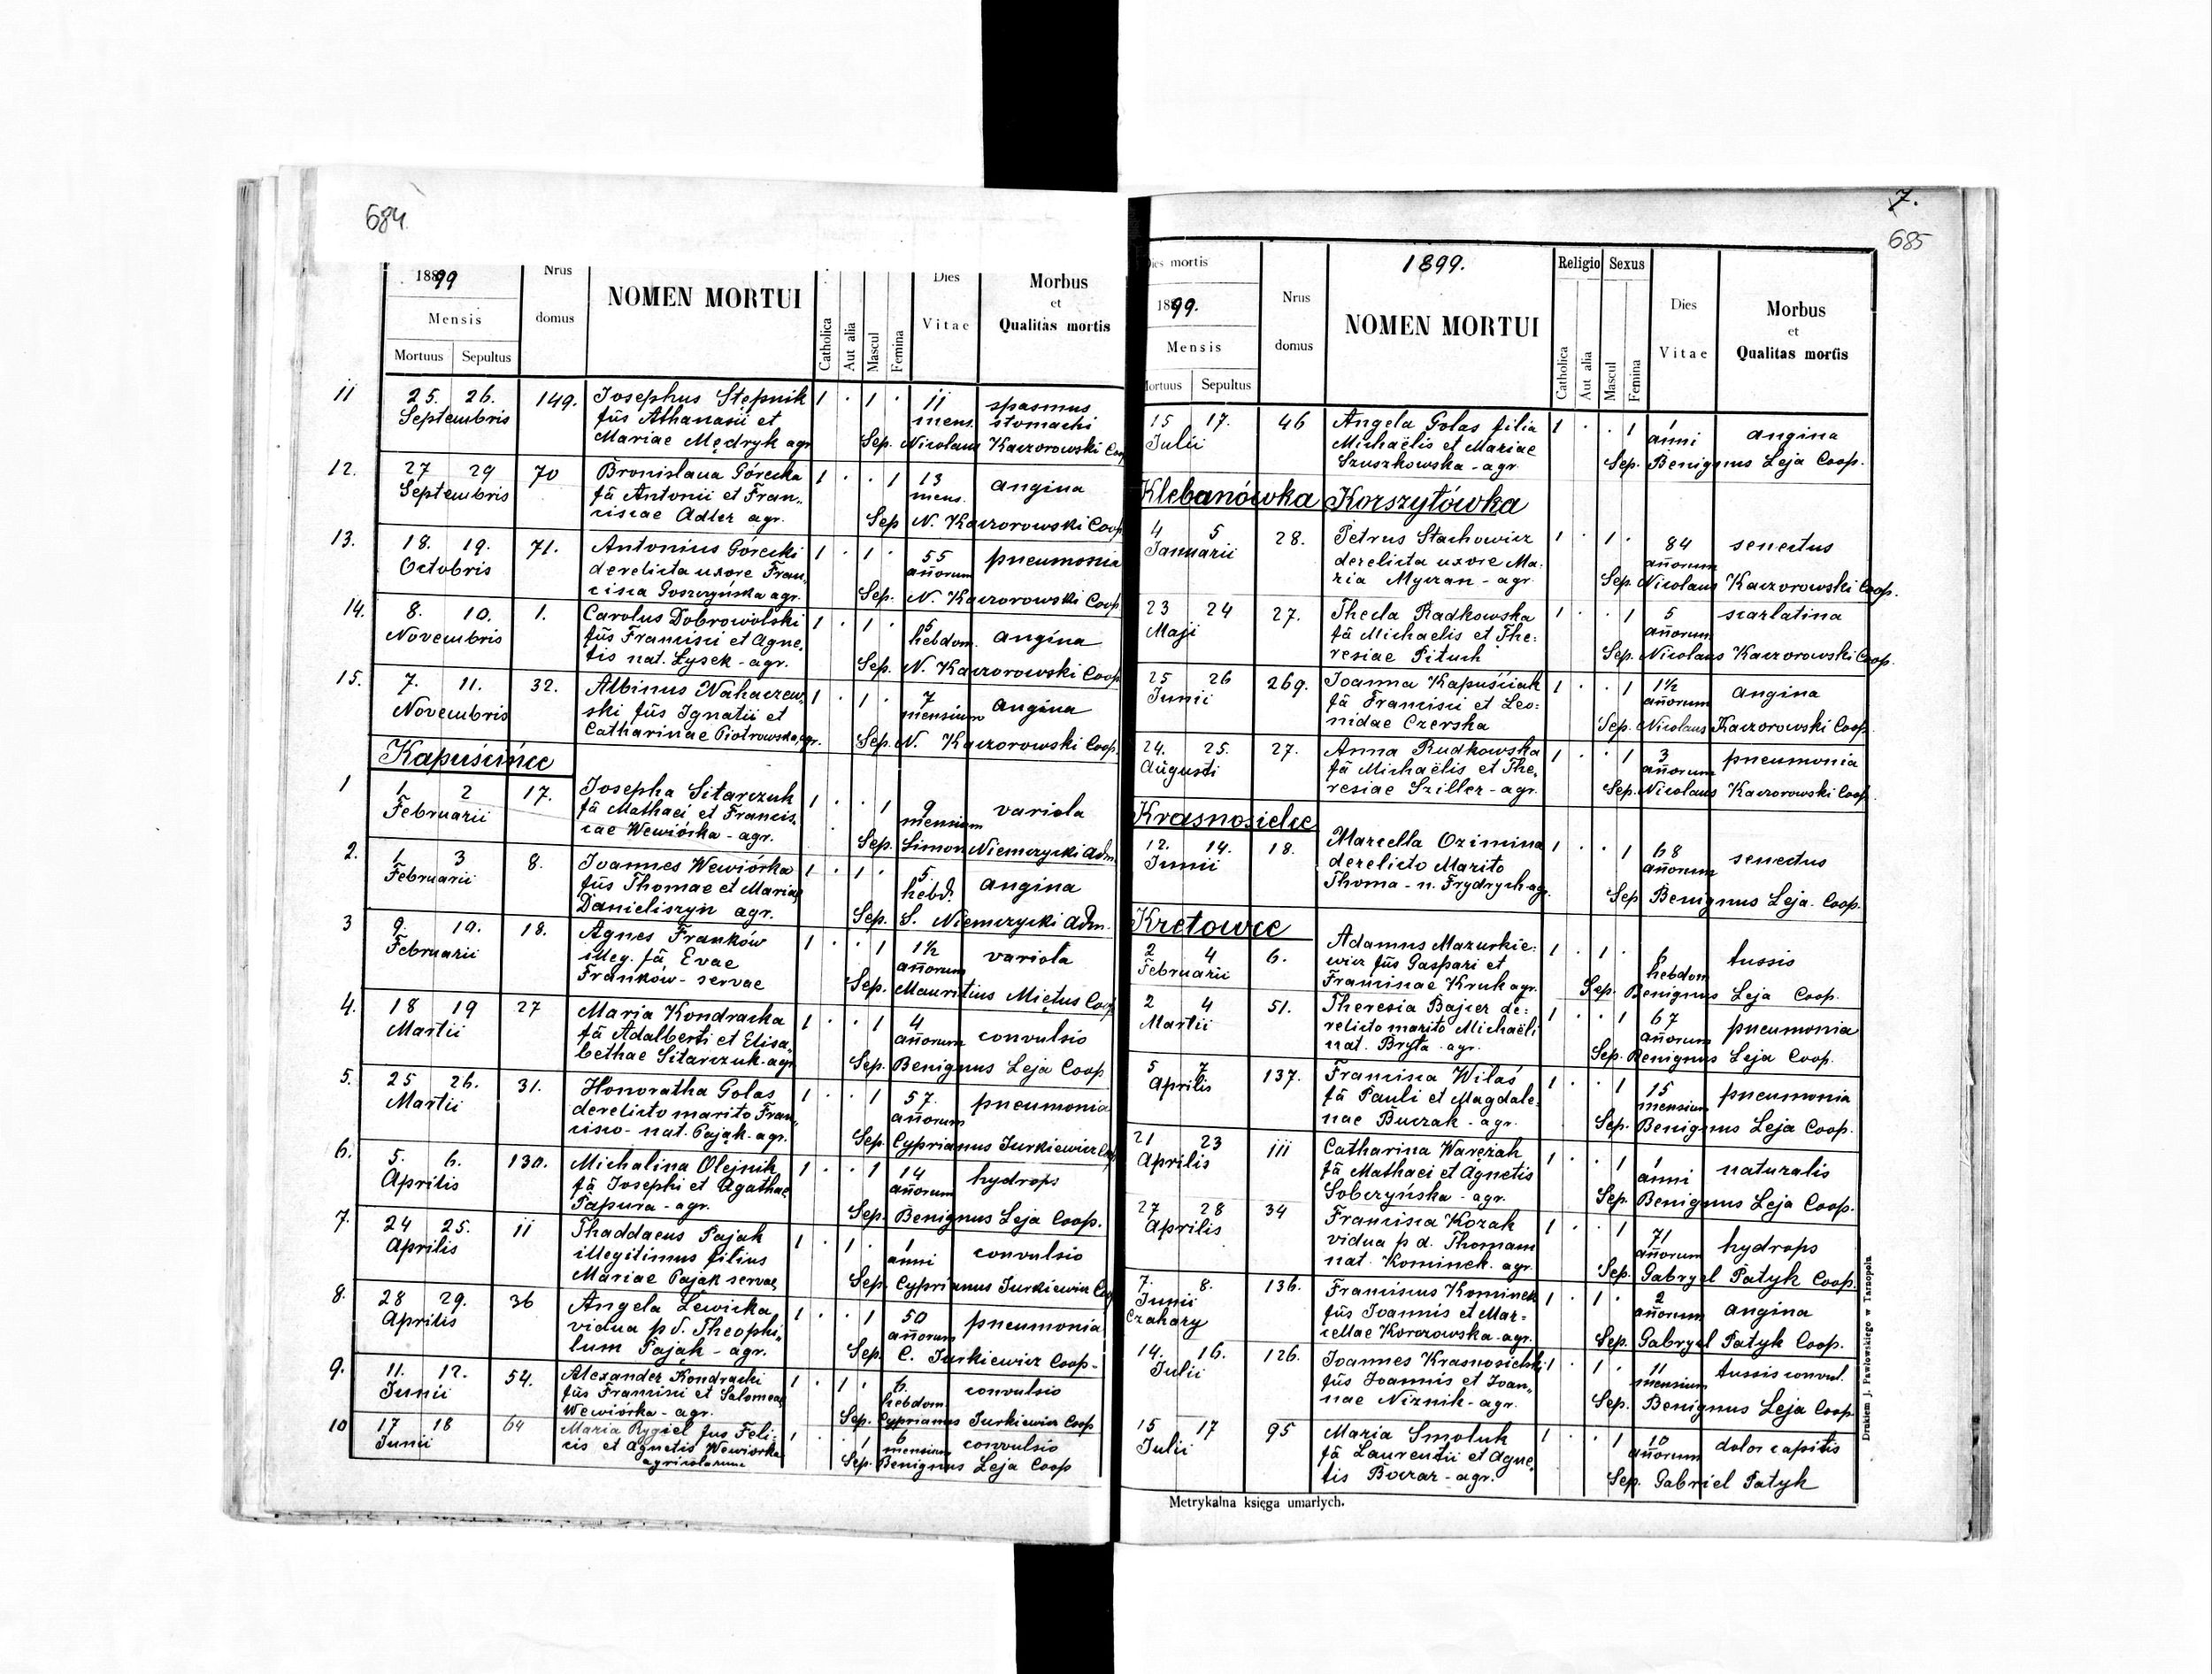 684
1899
Nrus
Dies
Morbus
NOMEN MORTUI
et
Mensis
domus
Vitae
Qualitas mortis
Catholica
Aut alia
Mascul
Femina
Mortuus Sepultus
11 25. 26. 149. Josephus Stepnik 1 . 1 . 11 spasmus
Septembris fũs Athanasii et mens. stomachi
Mariae Mędryk agr Sep. Nicolaus Kaczorowski Coop
12. 27 29 70 Bronislava Górecka 1 . . 1 13 angina
Septembris fã Antonii et Fran„ mens.
ciscae Adler agr. Sep N. Kaczorowski Coop
13. 18. 19. 71. Antonius Górecki 1 . 1 . 55 pneumonia
Octobris derelicta uxore Fran„ añorum
cisca Goszczyńska agr. Sep. N. Kaczorowski Coop
14. 8. 10. 1. Carolus Dobrowolski 1 . 1 . 5 angina
Novembris fũs Francisci et Agne„ hebdom.
tis nat. Łysek - agr. Sep. N. Kaczorowski Coop
15. 7. 11. 32. Albinus Nahaczew„ 1 . 1 . 7 angina
Novembris ski fũs Ignatii et mensium
Catharinae Piotrowska, agr. Sep. N. Kaczorowski Coop.
Kapuścińce
1 1 2 17. Josepha Sitarczuk 1 . . 1 9 variola
Februarii fã Mathaei et Francis„ mensium
cae Wewiórka - agr. Sep. Simon Niemczycki Adm.
2. 1 3 8. Joannes Wewiórka 1 . 1 . 5. angina
Februarii fũs Thomae et Mariae hebd.
Danieliszyn agr. Sep. S. Niemczycki Adm.
3 9. 10. 18. Agnes Franków 1 . . 1 1½ variola
Februarii illeg. fã Evae añorum
Franków - servae Sep. Mauritius Miętus Coop
4. 18 19 27 Maria Kondracka 1 . . 1 4 convulsio
Martii fã Adalberti et Elisa„ añorum
bethae Sitarczuk - agr Sep. Benignus Leja Coop
5. 25 26. 31. Honoratha Golas 1 . . 1 57. pneumonia
Martii derelicto marito Fran„ añorum
cisco - nat. Pająk - agr. Sep. Cyprianus Jurkiewicz Coop
6. 5. 6. 130. Michalina Olejnik 1 . . 1 14 hydrops
Aprilis fã Josephi et Agathae añorum
Papura - agr. Sep. Benignus Leja Coop.
7. 24 25. 11 Thaddaeus Pająk 1 . 1 . 1 convulsio
Aprilis illegitimus filius anni
Mariae Pająk servae Sep. Cyprianus Jurkiewicz Coop
8. 28 29. 36 Angela Lewicka 1 . . 1 50 pneumonia
Aprilis vidua p d. Theophi„ añorum
lum Pająk - agr. Sep. C. Jurkiewicz Coop-
9. 11. 12. 54. Alexander Kondracki 1 . 1 . 6. convulsio
Junii fũs Francisci et Salomeae hebdom.
Wewiórka - agr. Sep. Cyprianus Jurkiewicz Coop
10 17 18 64 Maria Rygiel fus Feli: 1 . . 1 6 convulsio
Junii cis et Agnetis Wewiorka mensium
agricolarum Sep. Benignus Leja Coop
7.
685
Dies mortis
1899.
Religio Sexus
1899.
Nrus
Dies
Morbus
et
NOMEN MORTUI
Mensis
domus
Vitae
Qualitas mortis
Catholica
Aut alia
Mascul
Femina
Mortuus Sepultus
15 17. 46 Angela Golas filia 1 . . 1 1 angina
Julii Michaëlis et Mariae anni
Szuszkowska - agr. Sep. Benignus Leja Coop.
Klebanówka Korszyłówka
4 5 28. Petrus Stachowicz 1 . 1 . 84 senectus
Januarii derelicta uxore Ma: añorum
ria Myczan - agr. Sep. Nicolaus Kaczorowski Coop.
23 24 27. Thecla Radkowska 1 . . 1 5 scarlatina
Maji fã Michaelis et The: añorum
resiae Pituch Sep. Nicolaus Kaczorowski Coop.
25 26 269. Joanna Kapuściak 1 . . 1 1½ angina
Junii fã Francisci et Leo: añorum
nidae Czerska Sep. Nicolaus Kaczorowski Coop.
24. 25. 27. Anna Rudkowska 1 . . 1 3 pneumonia
Augusti fã Michaëlis et The„ añorum
resiae Sziller - agr. Sep. Nicolaus Kaczorowski Coop.
Krasnosielce
12. 14. 18. Marcella Ozimina 1 . . 1 68 senectus
Junii derelicto Marito añorum
Thoma - n. Frydrych agr. Sep Benignus Leja. Coop.
Kretowce
2 4 6. Adamus Mazurkie: 1 . 1 . 6 tussis
Februarii wicz fũs Gaspari et hebdom
Francinae Kruk agr. Sep. Benignus Leja Coop.
2 4 51. Theresia Bajcer de: 1 . . 1 67 pneumonia
Martii relicto marito Michaëli añorum
nat. Bryła - agr. Sep. Benignus Leja Coop.
5 7 137. Francisca Wilaś 1 . . 1 15 pneumonia
Aprilis fã Pauli et Magdale„ mensium
nae Buczak - agr. Sep. Benignus Leja Coop.
21 23 111 Catharina Waręzak 1 . . 1 1 naturalis
Aprilis fã Mathaei et Agnetis anni
Sobczyńska - agr. Sep. Benignus Leja Coop.
27 28 34 Francisca Kozak 1 . . 1 71 hydrops
Aprilis vidua p d. Thomam añorum
nat. Kominek. agr. Sep. Gabryel Patyk Coop.
7. 8. 136. Franciscus Kominek 1 . 1 . 2 angina
Junii fũs Joannis et Mar= añorum
Czahary cellae Korczowska - agr. Sep. Gabryel Patyk Coop.
14. 16. 126. Joannes Krasnosielski 1 . 1 . 11 tussis convul.
Julii fũs Joannis et Joan„ mensium
nae Niznik - agr. Sep. Benignus Leja Coop.
15 17 95 Maria Smoluk 1 . . 1 10 dolor capitis
Julii fã Laurentii et Agne„ añorum
tis Boczar - agr. Sep. Gabriel Patyk
Metrykalna księga umarłych.
Drukiem J. Pawłowskiego w Tarnopolu